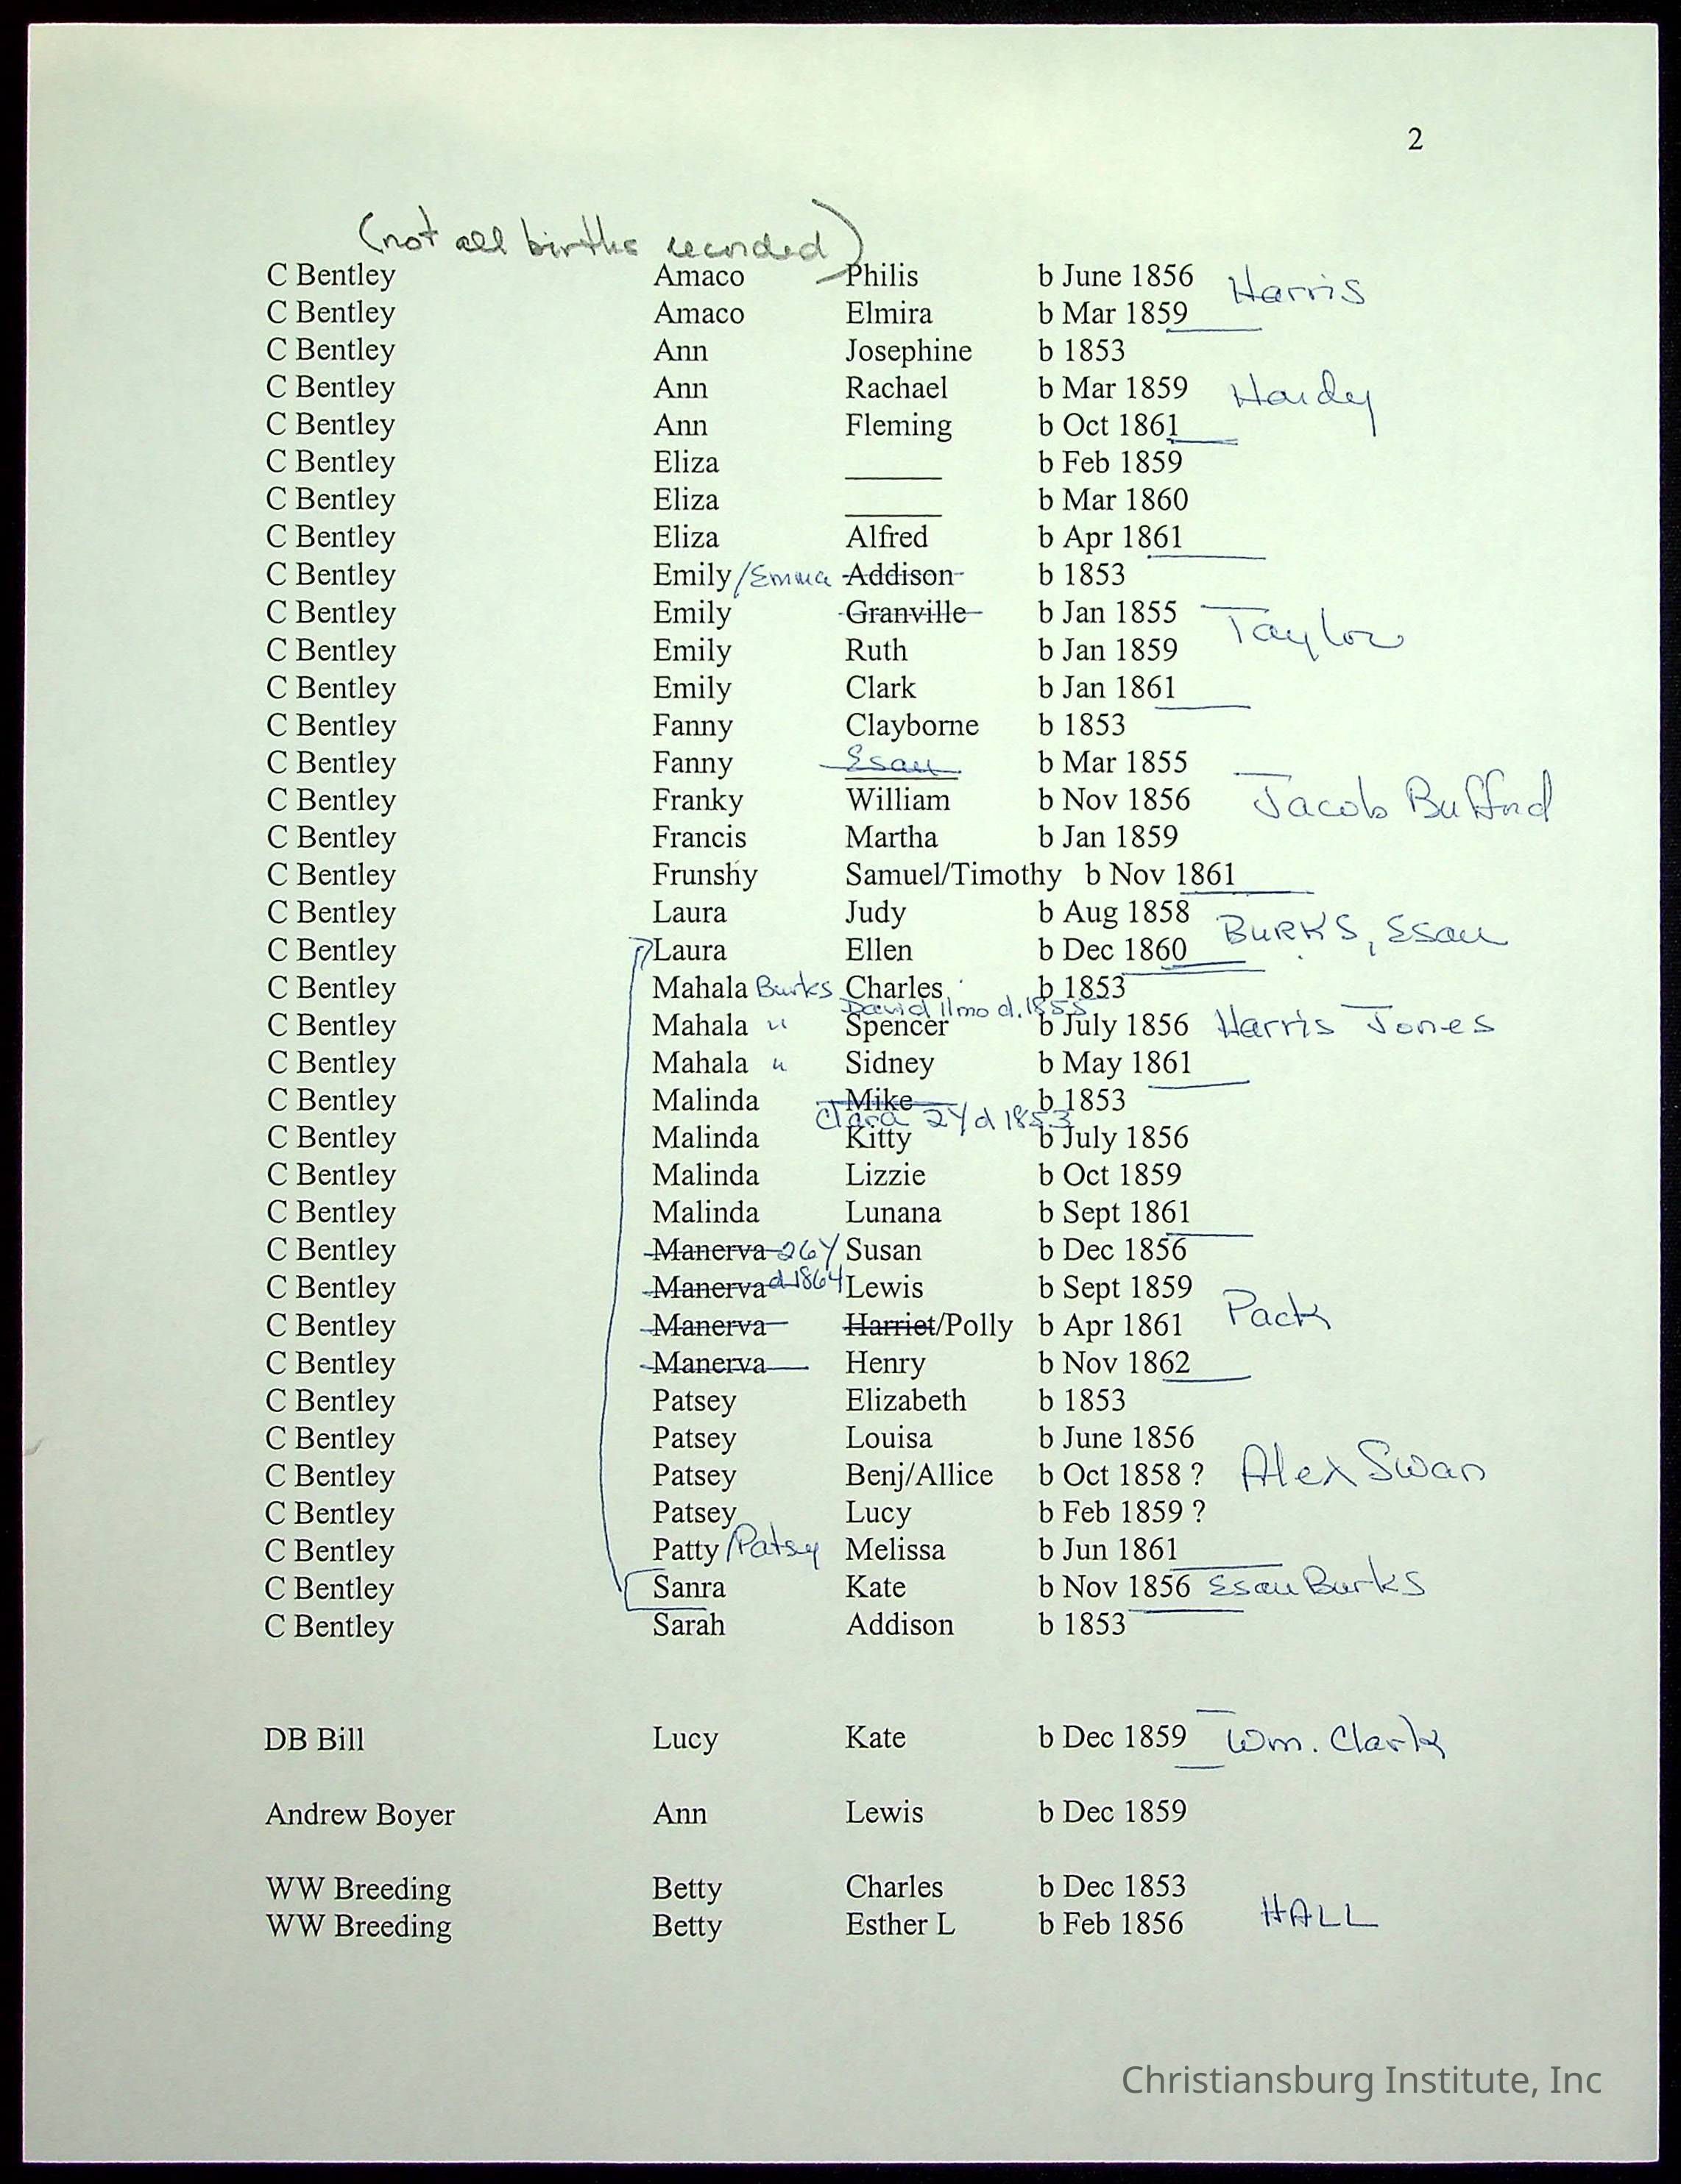 2
(not all births recorded)
C Bentley Amaco Philis b June 1856 Harris
C Bentley Amaco Elmira b Mar 1859
C Bentley Ann Josephine b 1853
C Bentley Ann Rachael b Mar 1859 Hardy
C Bentley Ann Fleming b Oct 1861
C Bentley Eliza ______ b Feb 1859
C Bentley Eliza ______ b Mar 1860
C Bentley Eliza Alfred b Apr 1861
C Bentley Emily/Emma Addison b 1853
C Bentley Emily Granville b Jan 1855 Taylor
C Bentley Emily Ruth b Jan 1859
C Bentley Emily Clark b Jan 1861
C Bentley Fanny Clayborne b 1853
C Bentley Fanny Esau b Mar 1855
C Bentley Franky William b Nov 1856 Jacob Bufford
C Bentley Francis Martha b Jan 1859
C Bentley Frunshy Samuel/Timothy b Nov 1861
C Bentley Laura Judy b Aug 1858 BURKS, Esau
C Bentley Laura Ellen b Dec 1860
C Bentley Mahala Burks Charles b 1853
David 11mo d. 1855
C Bentley Mahala " Spencer b July 1856 Harris Jones
C Bentley Mahala " Sidney b May 1861
C Bentley Malinda Mike b 1853
Clara 2Y d 1853
C Bentley Malinda Kitty b July 1856
C Bentley Malinda Lizzie b Oct 1859
C Bentley Malinda Lunana b Sept 1861
C Bentley Manerva 26Y Susan b Dec 1856
C Bentley Manerva d 1864 Lewis b Sept 1859
C Bentley Manerva Harriet/Polly b Apr 1861 Pack
C Bentley Manerva Henry b Nov 1862
C Bentley Patsey Elizabeth b 1853
C Bentley Patsey Louisa b June 1856
C Bentley Patsey Benj/Allice b Oct 1858 ? Alex Swan
C Bentley Patsey Lucy b Feb 1859 ?
C Bentley Patty/Patsy Melissa b Jun 1861
C Bentley Sanra Kate b Nov 1856 Esau Burks
C Bentley Sarah Addison b 1853
DB Bill Lucy Kate b Dec 1859 Wm. Clark
Andrew Boyer Ann Lewis b Dec 1859
WW Breeding Betty Charles b Dec 1853
WW Breeding Betty Esther L b Feb 1856 HALL
Christiansburg Institute, Inc